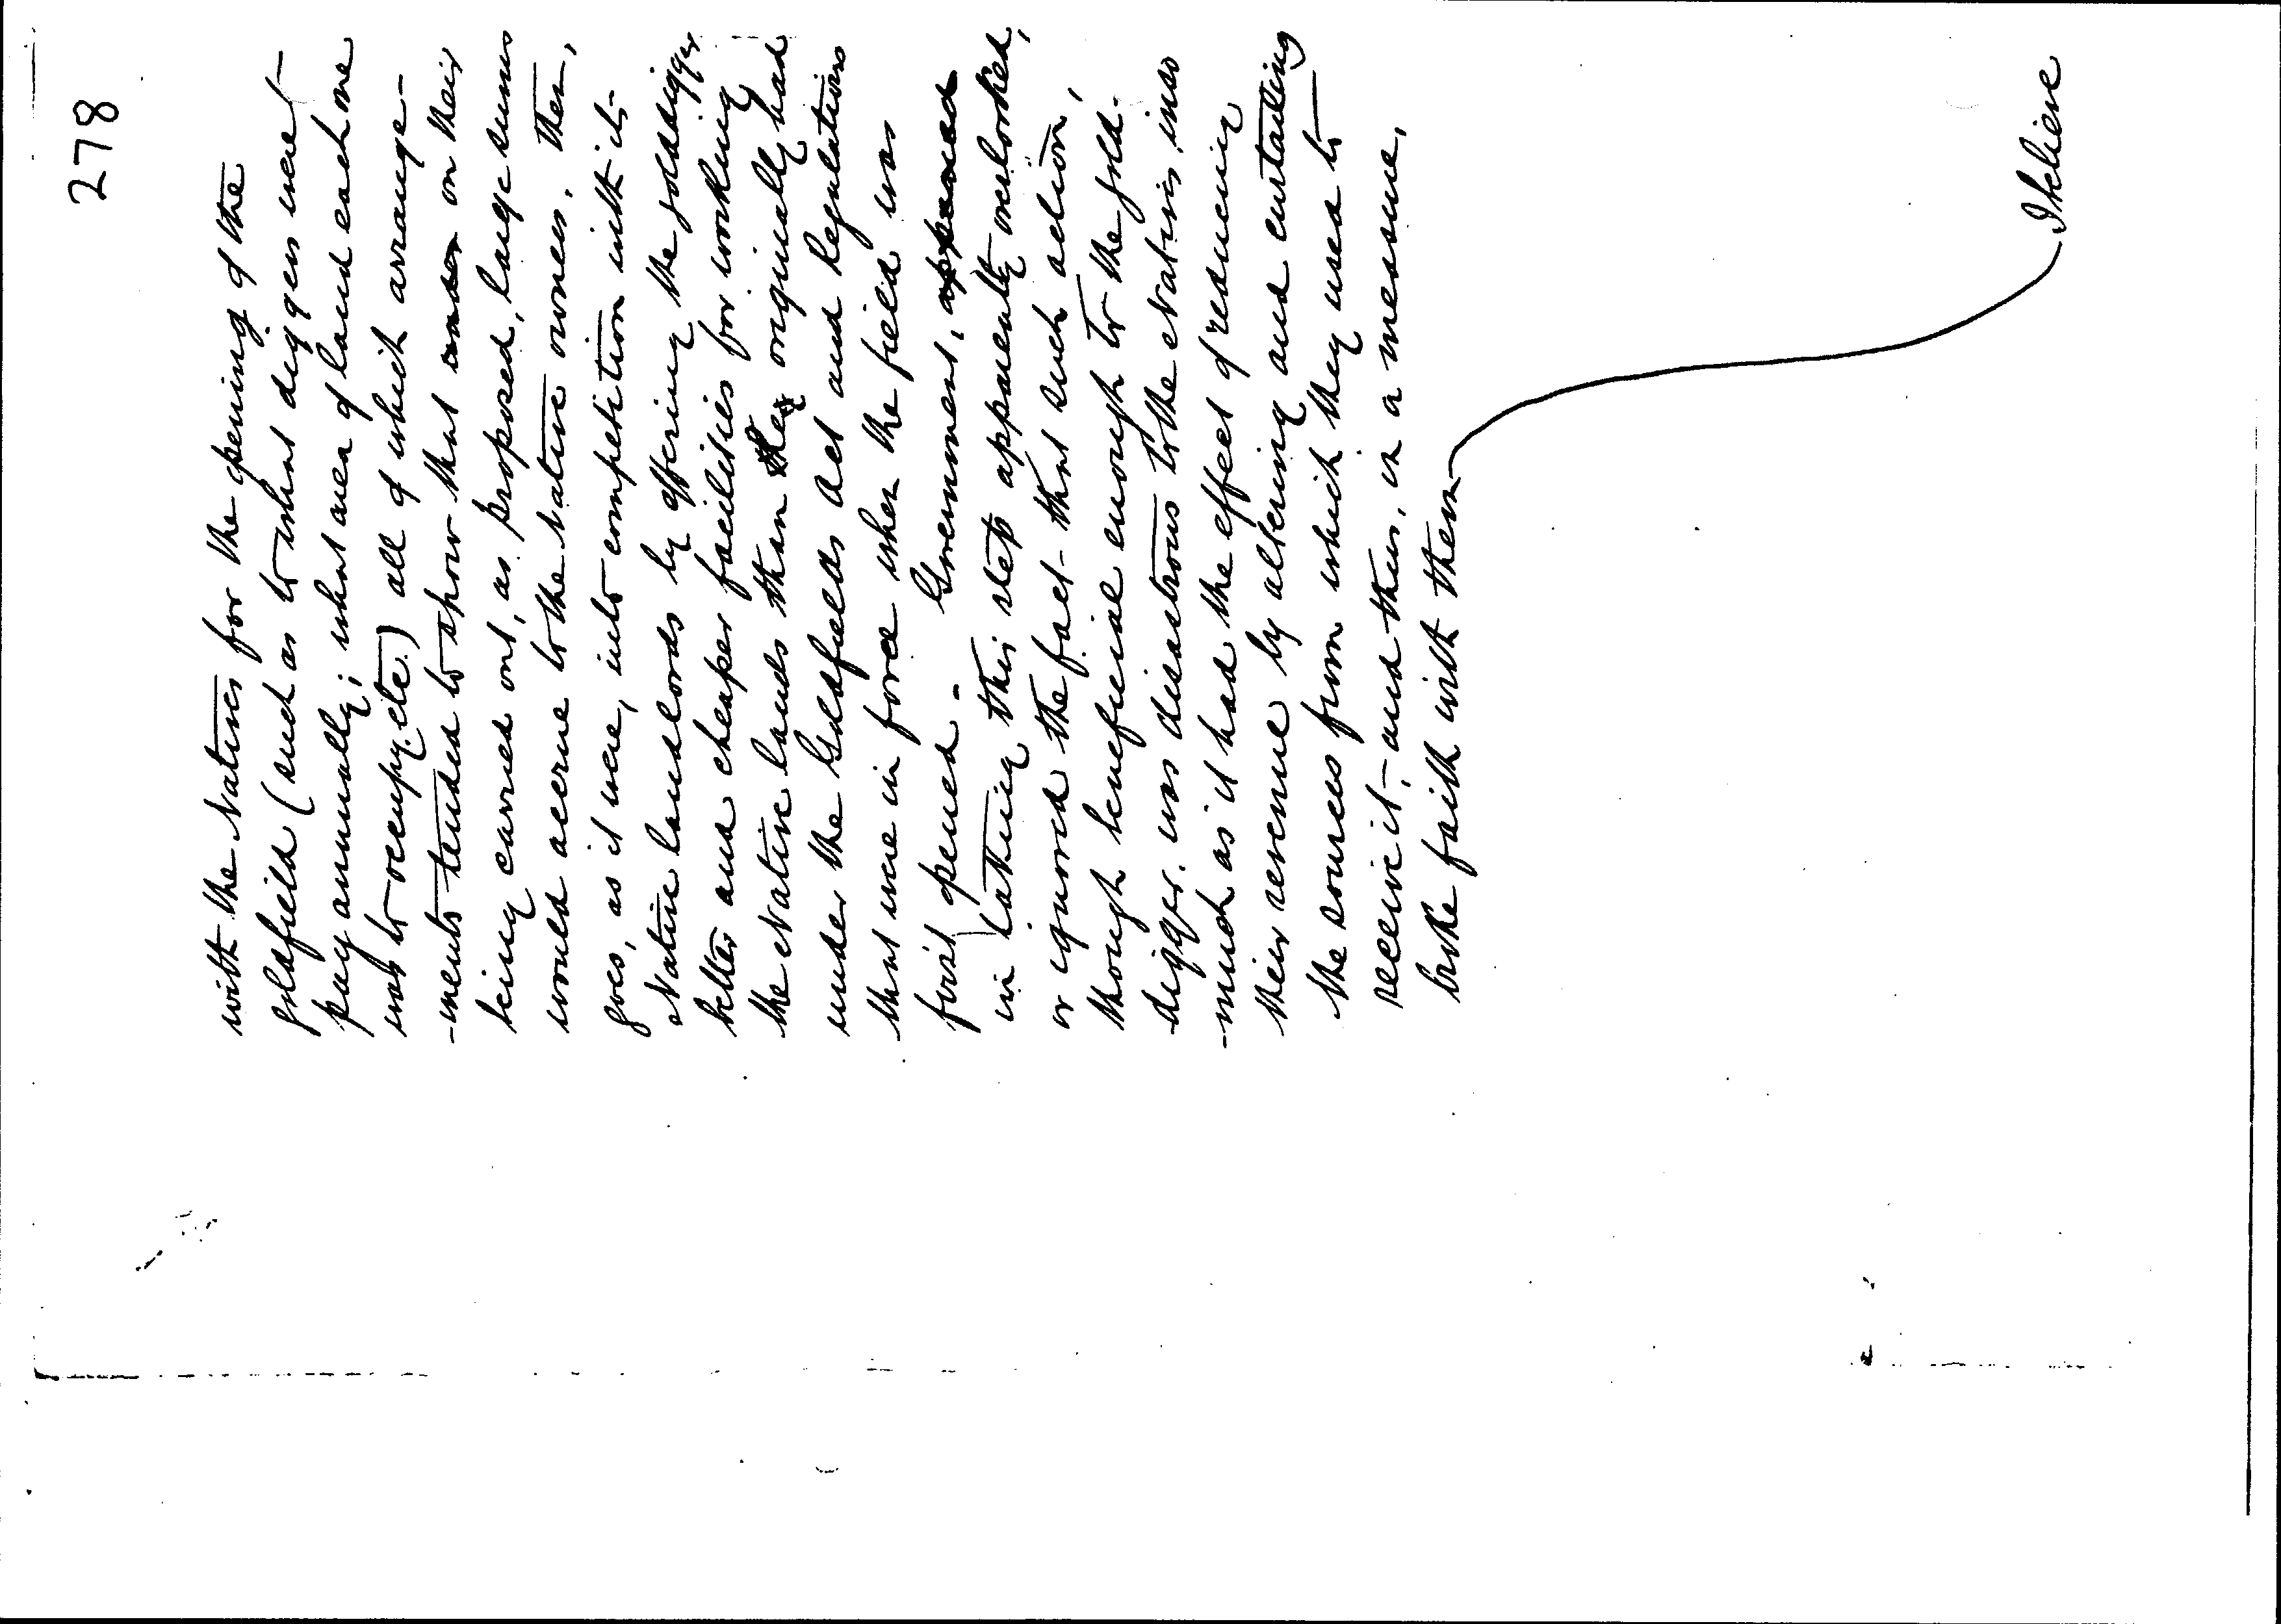 278
with the Natives for the opening of the
goldfield (such as to what diggers were to
pay annually; what area of land each one
was to occupy, etc.) all of which arrange-
-ments tended to show that on their
being carried out, as proposed, large sums
would accrue to the Native owners. Then,
goes, as it were, into competition with its
Native landlords by offering the golddigger
better and cheaper facilities for working
the Native lands than they originally had
under the Goldfields Act and Regulations
that were in force when the field was
first opened. - Government,
in taking this step apparently overlooked,
or ignored the fact - that such action,
though beneficial enough to the gold-
digger, was disastrous to the Natives, inas
-much as it had the effect of reducing
their revenue by altering and curtailing
the sources from which they used to
receive it, - and thus, in a measure,
broke faith with them